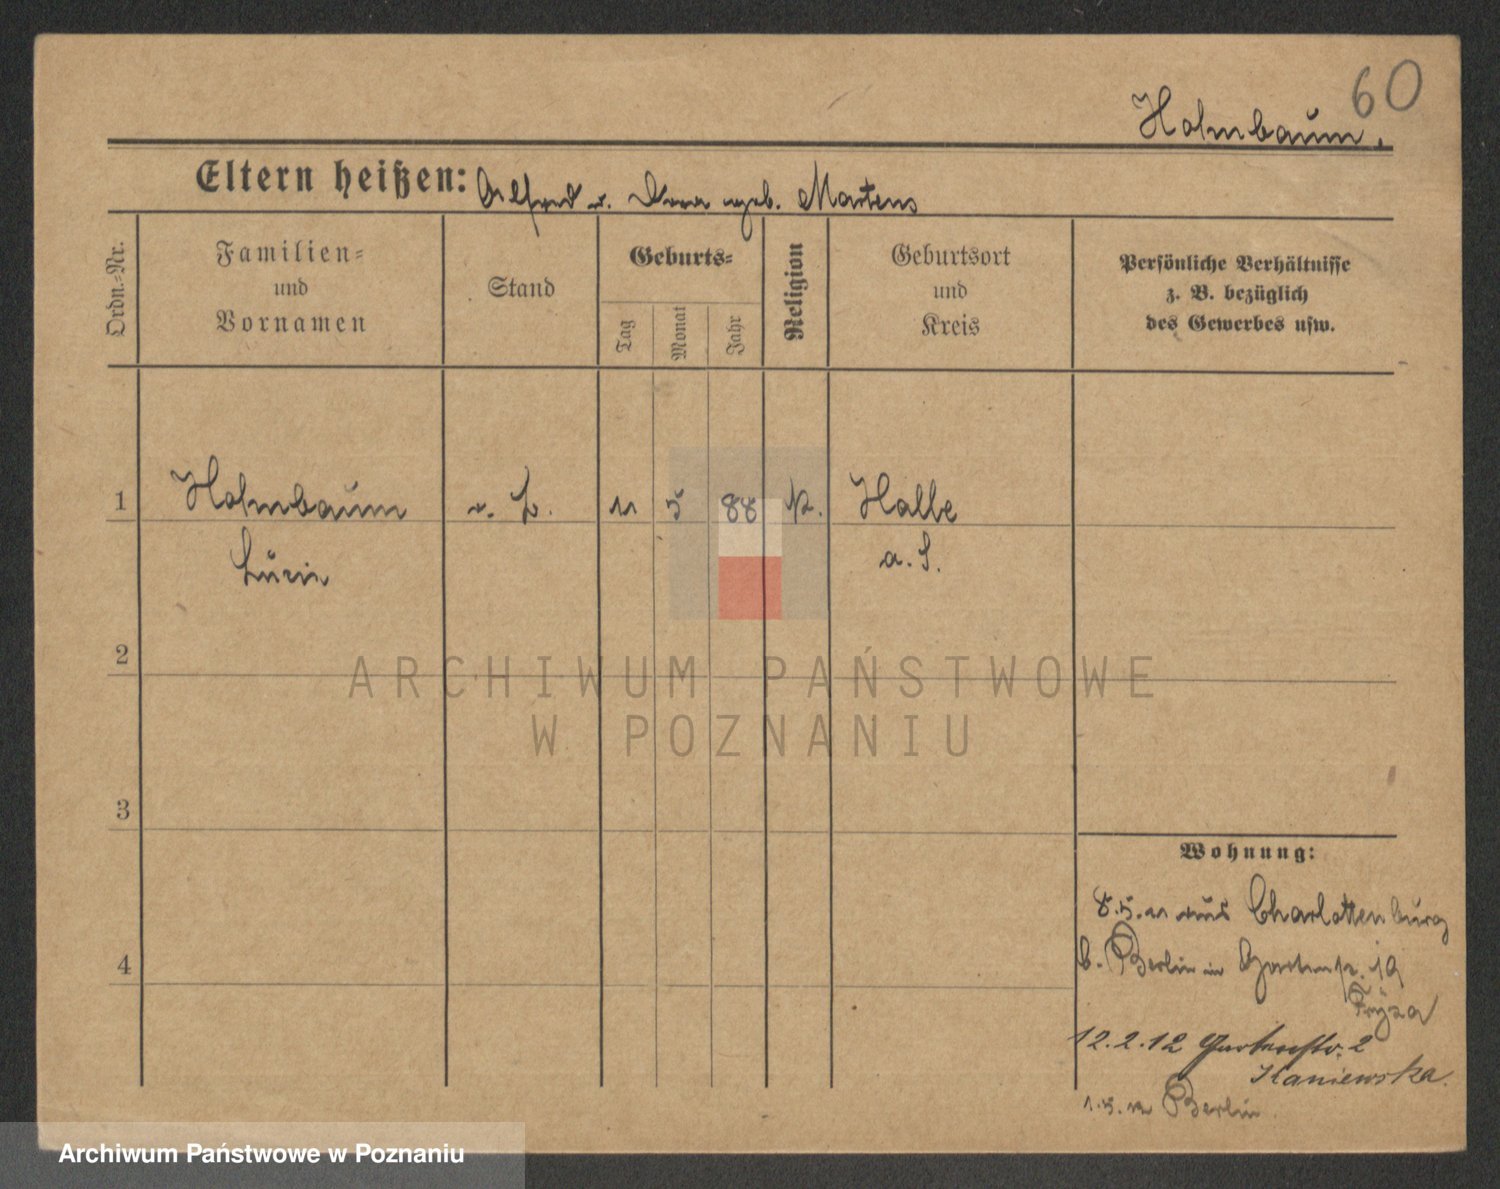 60
Holmbaum.
Eltern heißen: Alfred u. Dora geb. Martens
Ordn.-Nr.
Familien-
und
Vornamen
Stand
Geburts-
Tag
Monat
Jahr
Religion
Geburtsort
und
Kreis
Persönliche Verhältnisse
z. B. bezüglich
des Gewerbes usw.
1 Holmbaum 11 5 88 k. Halle
a. S.
2
3
4
ARCHIWUM PAŃSTWOWE
W POZNANIU
Wohnung:
8.5.11 aus Charlottenburg
b. Berlin in Gartenstr. 19
12.2.12 Gartenstr. 2
Kaniewska.
1.5.12 Berlin
Archiwum Państwowe w Poznaniu